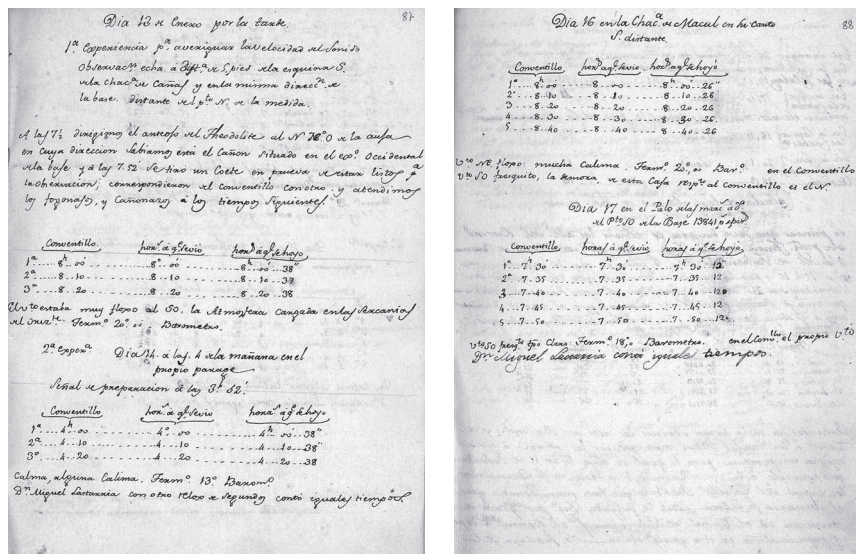 87
Dia 13 de Enero por la tarde.
1ª Experiencia pª averiguar la velocidad del Sonido
Observacⁿ echa à de 5 pies de la esquina S.
de la chacª de Cañas y en la misma direccⁿ de
la base. distante del pto N. de la medida.
A las 7½ dirigimos el anteojo del Theodolite al N 78°O de la auja
en cuya direccion sabiamos està el Cañon situado en el exº Occidental
de la base y à las 7.52' se tiro un Coete en prueva de estar listos pª
la observacion; correspondieron del conventillo con otro. y atendimos
los fogonasos, y Cañonazos à los tiempos siguientes.
Conventillo. horª à q.e se vio horª à q.e se hoyo
1ª .... 8h .. 00 ........ 8º .. 00 ........ 8h .. 00 .. 38"
2ª .... 8 .. 10 ........ 8 .. 10 ........ 8 .. 10 .. 37
3ª .... 8 .. 20 ........ 8 .. 20 ........ 8 .. 20 .. 38
El vto estaba muy flojo al SO. la Atmosfera cargada en las sercanias
Term.º 20.º 00 Barometro.
2ª experª Dia 14. à las 4 de la mañana en el
propio parage
Señal de preparacion à las 3h 52'
Conventillo horª à q.e se vio horaª à q.e se hoyo
1ª .... 4h .. 00 ........ 4º .. 00 ........ 4h .. 00 .. 38"
2ª .... 4 .. 10 ........ 4 .. 10 ........ 4 .. 10 .. 38"
3º .... 4 .. 20 ........ 4 .. 20 ........ 4 .. 20 .. 38
Calma, alguna Calima. Term.º 13.º Barom.º
Dn Miguel Lastarria con otro relox de segundos contó iguales tiempos.
88
Dia 16 en la Chacª de Macul en su canto
S. distante.
Conventillo horª à q.e se vio horª à q.e se hoyo
1ª .... 8h .. 00 ...... 8 .. 00 ...... 8h .. 00 .. 26"
2ª .... 8 .. 10 ...... 8 .. 10 ...... 8 .. 10 .. 26
3 .... 8 .. 20 ...... 8 .. 20 ...... 8 .. 20 .. 26
4 .... 8 .. 30 ...... 8 .. 30 ...... 8 .. 30 .. 26
5 .... 8 .. 40 ...... 8 .. 40 ...... 8 .. 40 .. 26
vto NE flojo. mucha Calima. Term.º 20.º 00 Bar.º en el Conventillo
vto SO fresquito, la demora de esta Casa respto al conventillo es el N.
Dia 17 en el Palo de las
el Pto SO de la Base 13841,5
Conventillo horas à q.e se vio horas à q.e se hoyo,
1ª .. 7h .. 30 ...... 7h .. 30 ...... 7h .. 30 12"
2ª .. 7 .. 35 ...... 7 .. 35 ...... 7 .. 35 12
3 .. 7 .. 40 ...... 7 .. 40 ...... 7 .. 40 12
4 .. 7 .. 45 ...... 7 .. 45 ...... 7 .. 45 12
5 .. 7 .. 50 ...... 7 .. 50 ...... 7 .. 50 12
vto SO tpo Claro. Term.º 18.º Barometro. en el el propio vto
Dn Miguel Lastarria contó iguales tiempos.